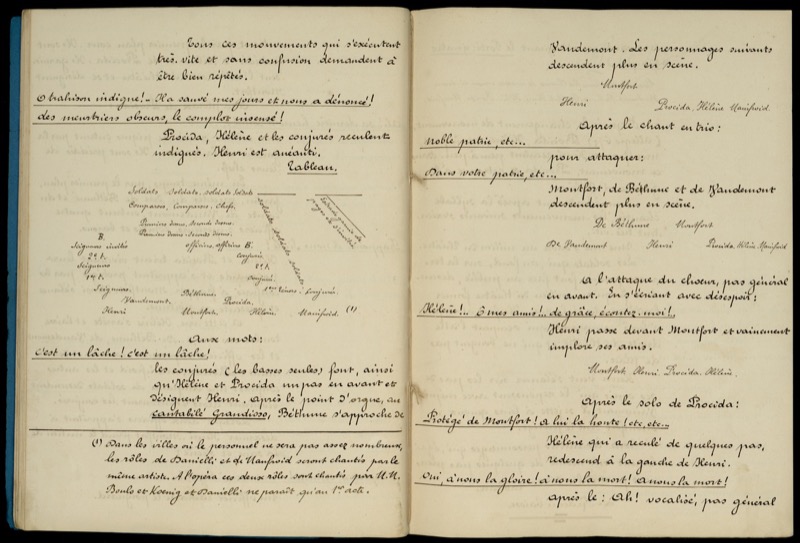 Tous ces mouvements qui s'exécutent
très vite et sans confusion demandent à
être bien répétés.
O trahison indigne!.. Il a sauvé mes jours et nous a dénoncé!
des meurtriers obscurs, le complot insensé!
Procida, Hélène et les conjurés reculent
indignés. Henri est anéanti.
Tableau.
Soldats Soldats. Soldats Soldats
Comparses, Comparses, Chefs.
Premiers dames, Seconds dames.
Premiers dames. Seconds dames.
B. officiers. officiers B.
Seigneurs invités Conjurés.
2e t. 2e t.
Seigneurs Conjurés.
1er t. 1ers ténors. Conjurés.
Seigneurs. Béthune. Procida.
Vaudemont.
Henri Montfort. Hélène. Mainfroid. (1)
soldats soldats soldats
Aux mots:
C'est un lâche! c'est un lâche!
les conjurés (les basses seules) font, ainsi
qu'Hélène et Procida un pas en avant et
désignent Henri. Après le point d'orgue, au
cantabilé Grandioso, Béthune s'approche de
(1) Dans les villes où le personnel ne sera pas assez nombreux,
les rôles de Danielli et de Mainfroid seront chantés par le
même artiste. A l'opéra ces deux rôles sont chantés par M.M.
Boulo et Koenig et Danielli ne paraît qu'au 1er acte.
Vaudemont. Les personnages suivants
descendent plus en scène.
Montfort.
Henri Procida, Hélène Mainfroid.
Après le chant en trio:
Noble patrie, etc...
pour attaquer:
Dans votre patrie, etc...
Montfort, de Béthune et de Vaudemont
descendent plus en scène.
De Béthune Montfort
De Vaudemont Henri Procida, Hélène, Mainfroid
A l'attaque du choeur, pas général
en avant. En s'écriant avec désespoir:
Hélène!.. O mes amis!.. de grâce, écoutez-moi!..
Henri passe devant Montfort et vainement
implore ses amis.
Montfort, Henri, Procida, Hélène.
Après le solo de Procida:
Protégé de Montfort! A lui la honte! etc, etc...
Hélène qui a reculé de quelques pas,
redescend à la gauche de Henri.
Oui, à nous la gloire! à nous la mort! à nous la mort!
après le: Ah! vocalisé, pas général